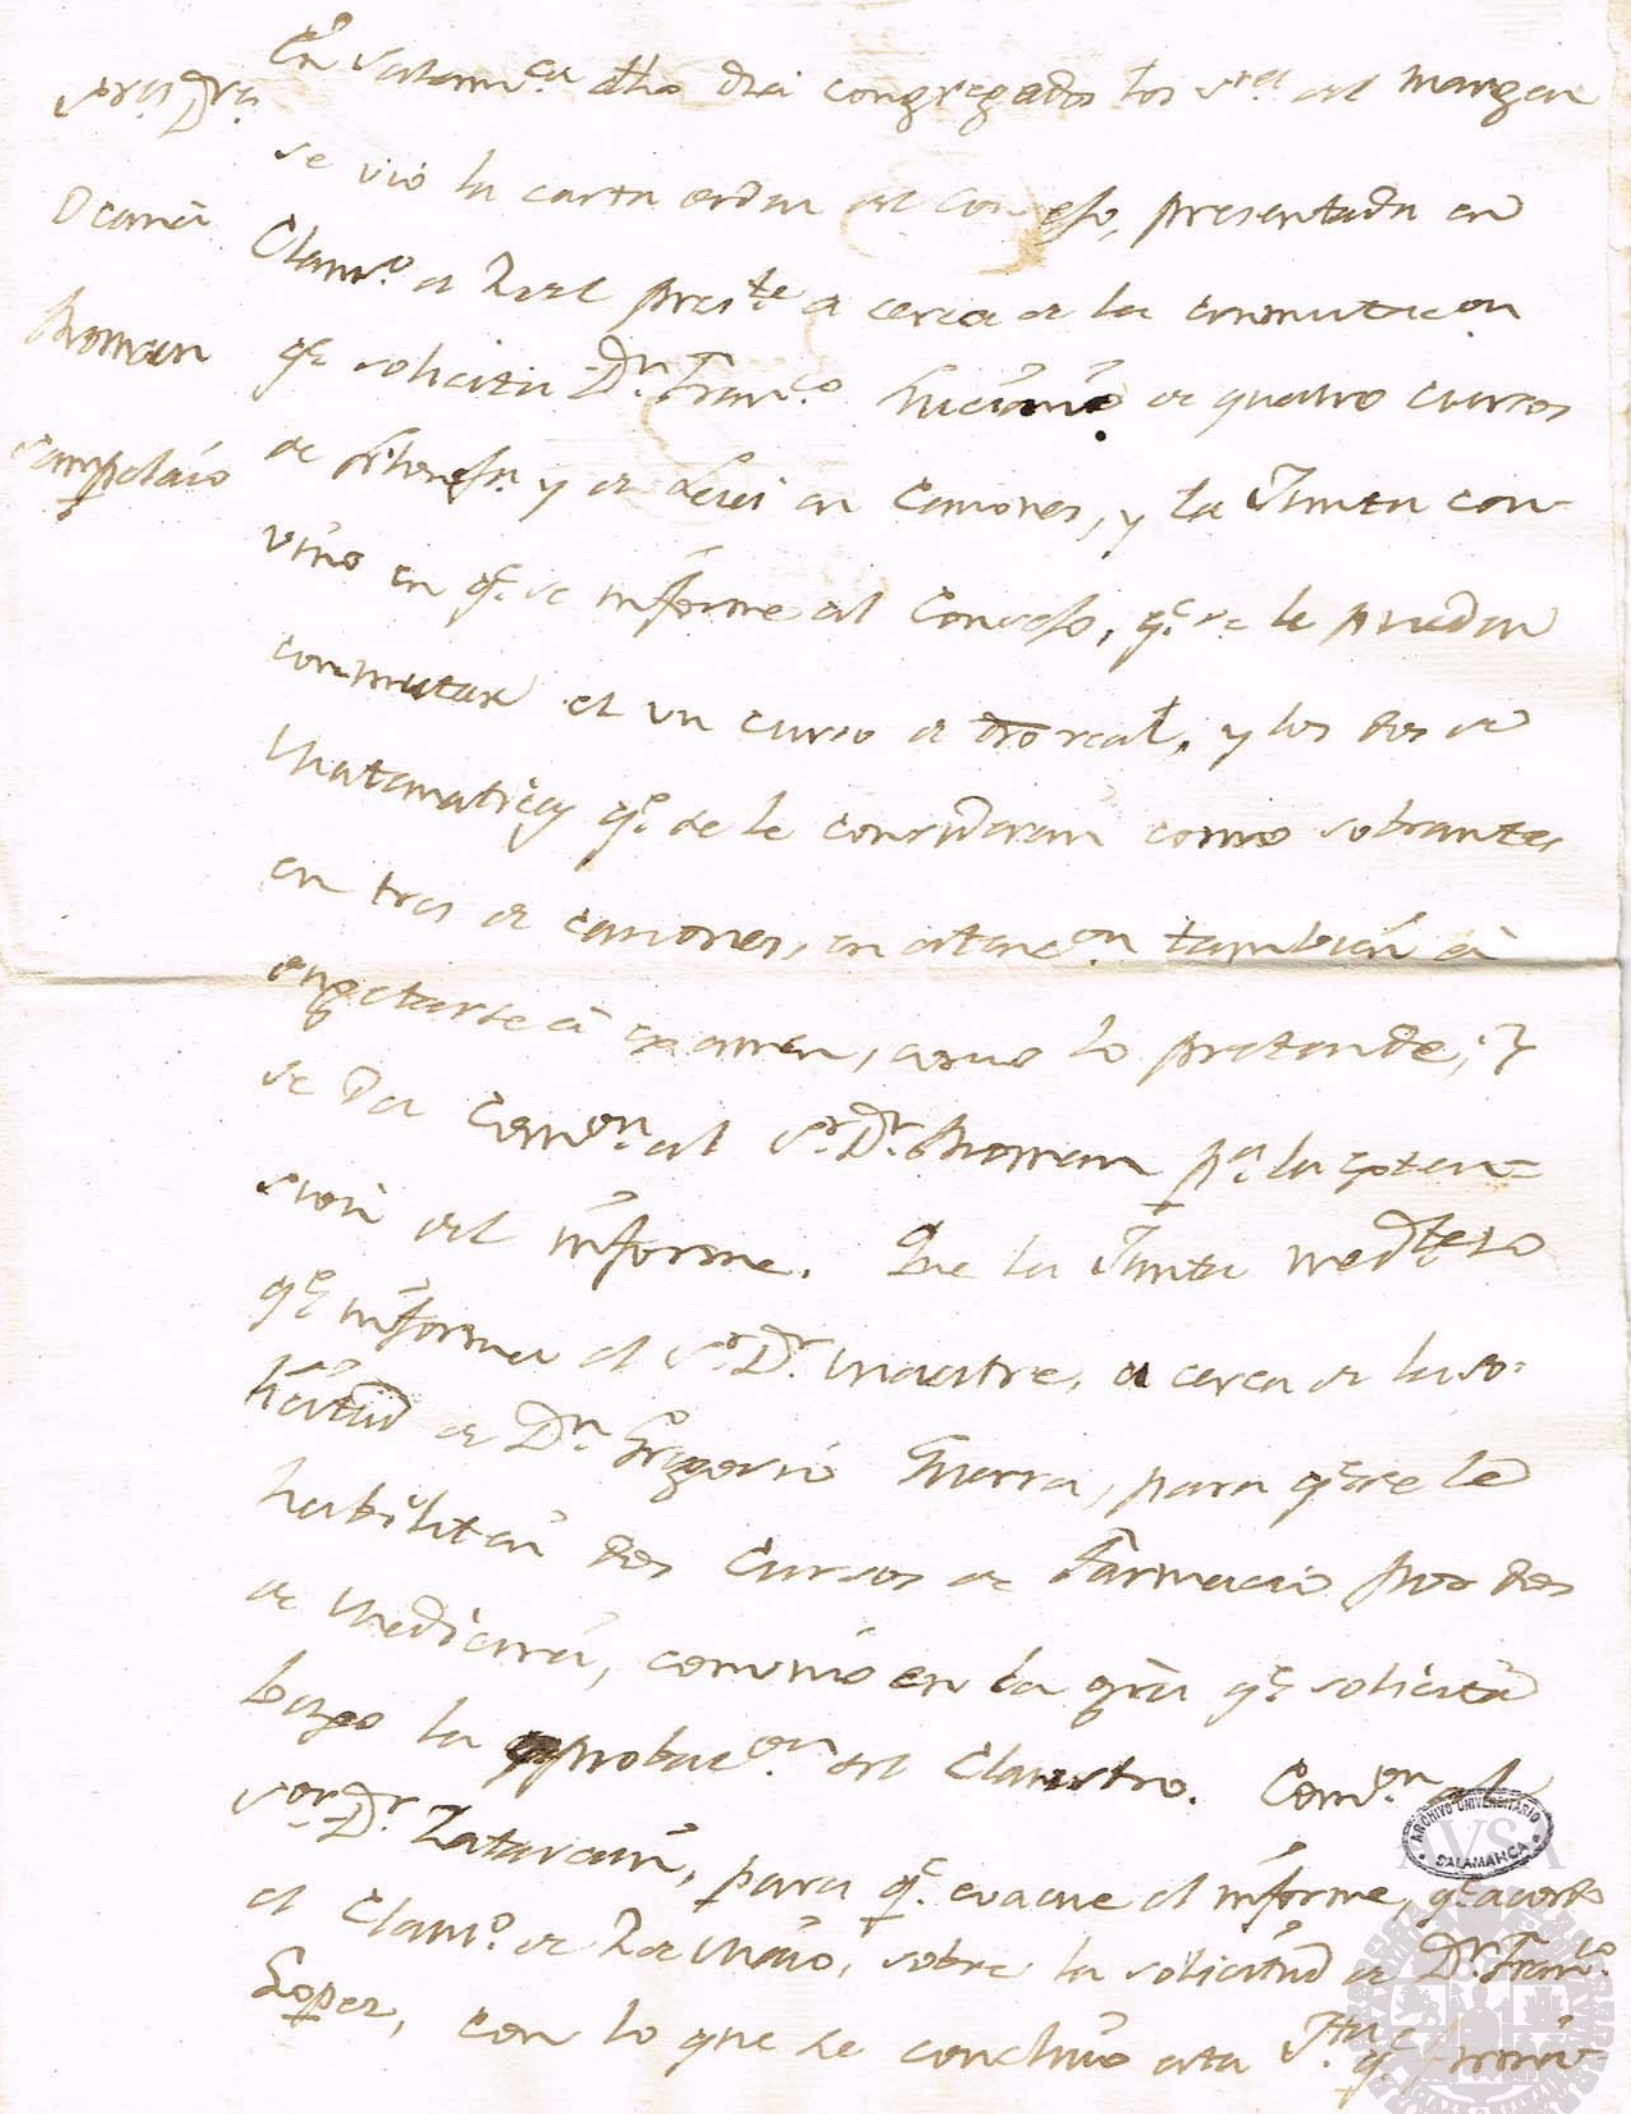 Sres. Drs.
Ocaña
Roman
Sampelaio
En Salamca dho dia congregados los Sres del margen
se vió la carta orden del Consejo, presentada en
Claustro de 2 del preste a cerca de la conmutacion
qe solicita Dn. Franco. de quatro cursos
de Filosofia y de Leies en Canones, y la Junta con-
vino en qe. se informe al Consejo, qe. se le pueden
conmutar el un curso de Dro real, y los dos de
Matematicas qe. se le consideran como sobrantes
en tres de canones, en atencon. tambien á
sugetarse á examen, como lo pretende; y
se da Comon. al Sr. Dr. Roman pa. la esten-
sion del informe. Que la Junta medte lo
qe informa el Sr. Dr. Maestre, a cerca de la so-
licitud de Dn. Gregorio Guerra, para qe se le
habiliten dos Cursos de Farmacia por dos
de Medicina, convino en la gra qe solicita
baxo la aprobacon. del Claustro. Comon. al
Sor. Dr. Zatarain, para qe. evacue el informe, qe acordó
el Claustro. de 2 de Maio, sobre la solicitud de Dn. Franco.
Lopez, con lo que se concluió esta Jta. qe firmó
ARCHIVO UNIVERSITARIO
SALAMANCA
AVSA